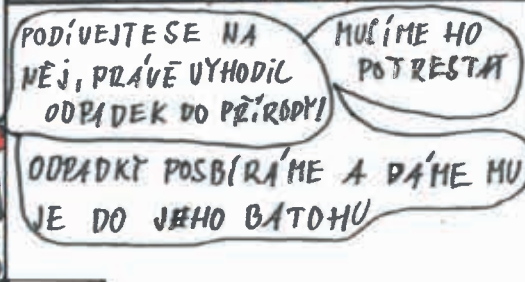 PODÍVEJTE SE NA
NĚJ, PRÁVĚ VYHODIL
ODPADEK DO PŘÍRODY!
MUSÍME HO
POTRESTAT
ODPADKY POSBÍRÁME A DÁME MU
JE DO JEHO BATOHU